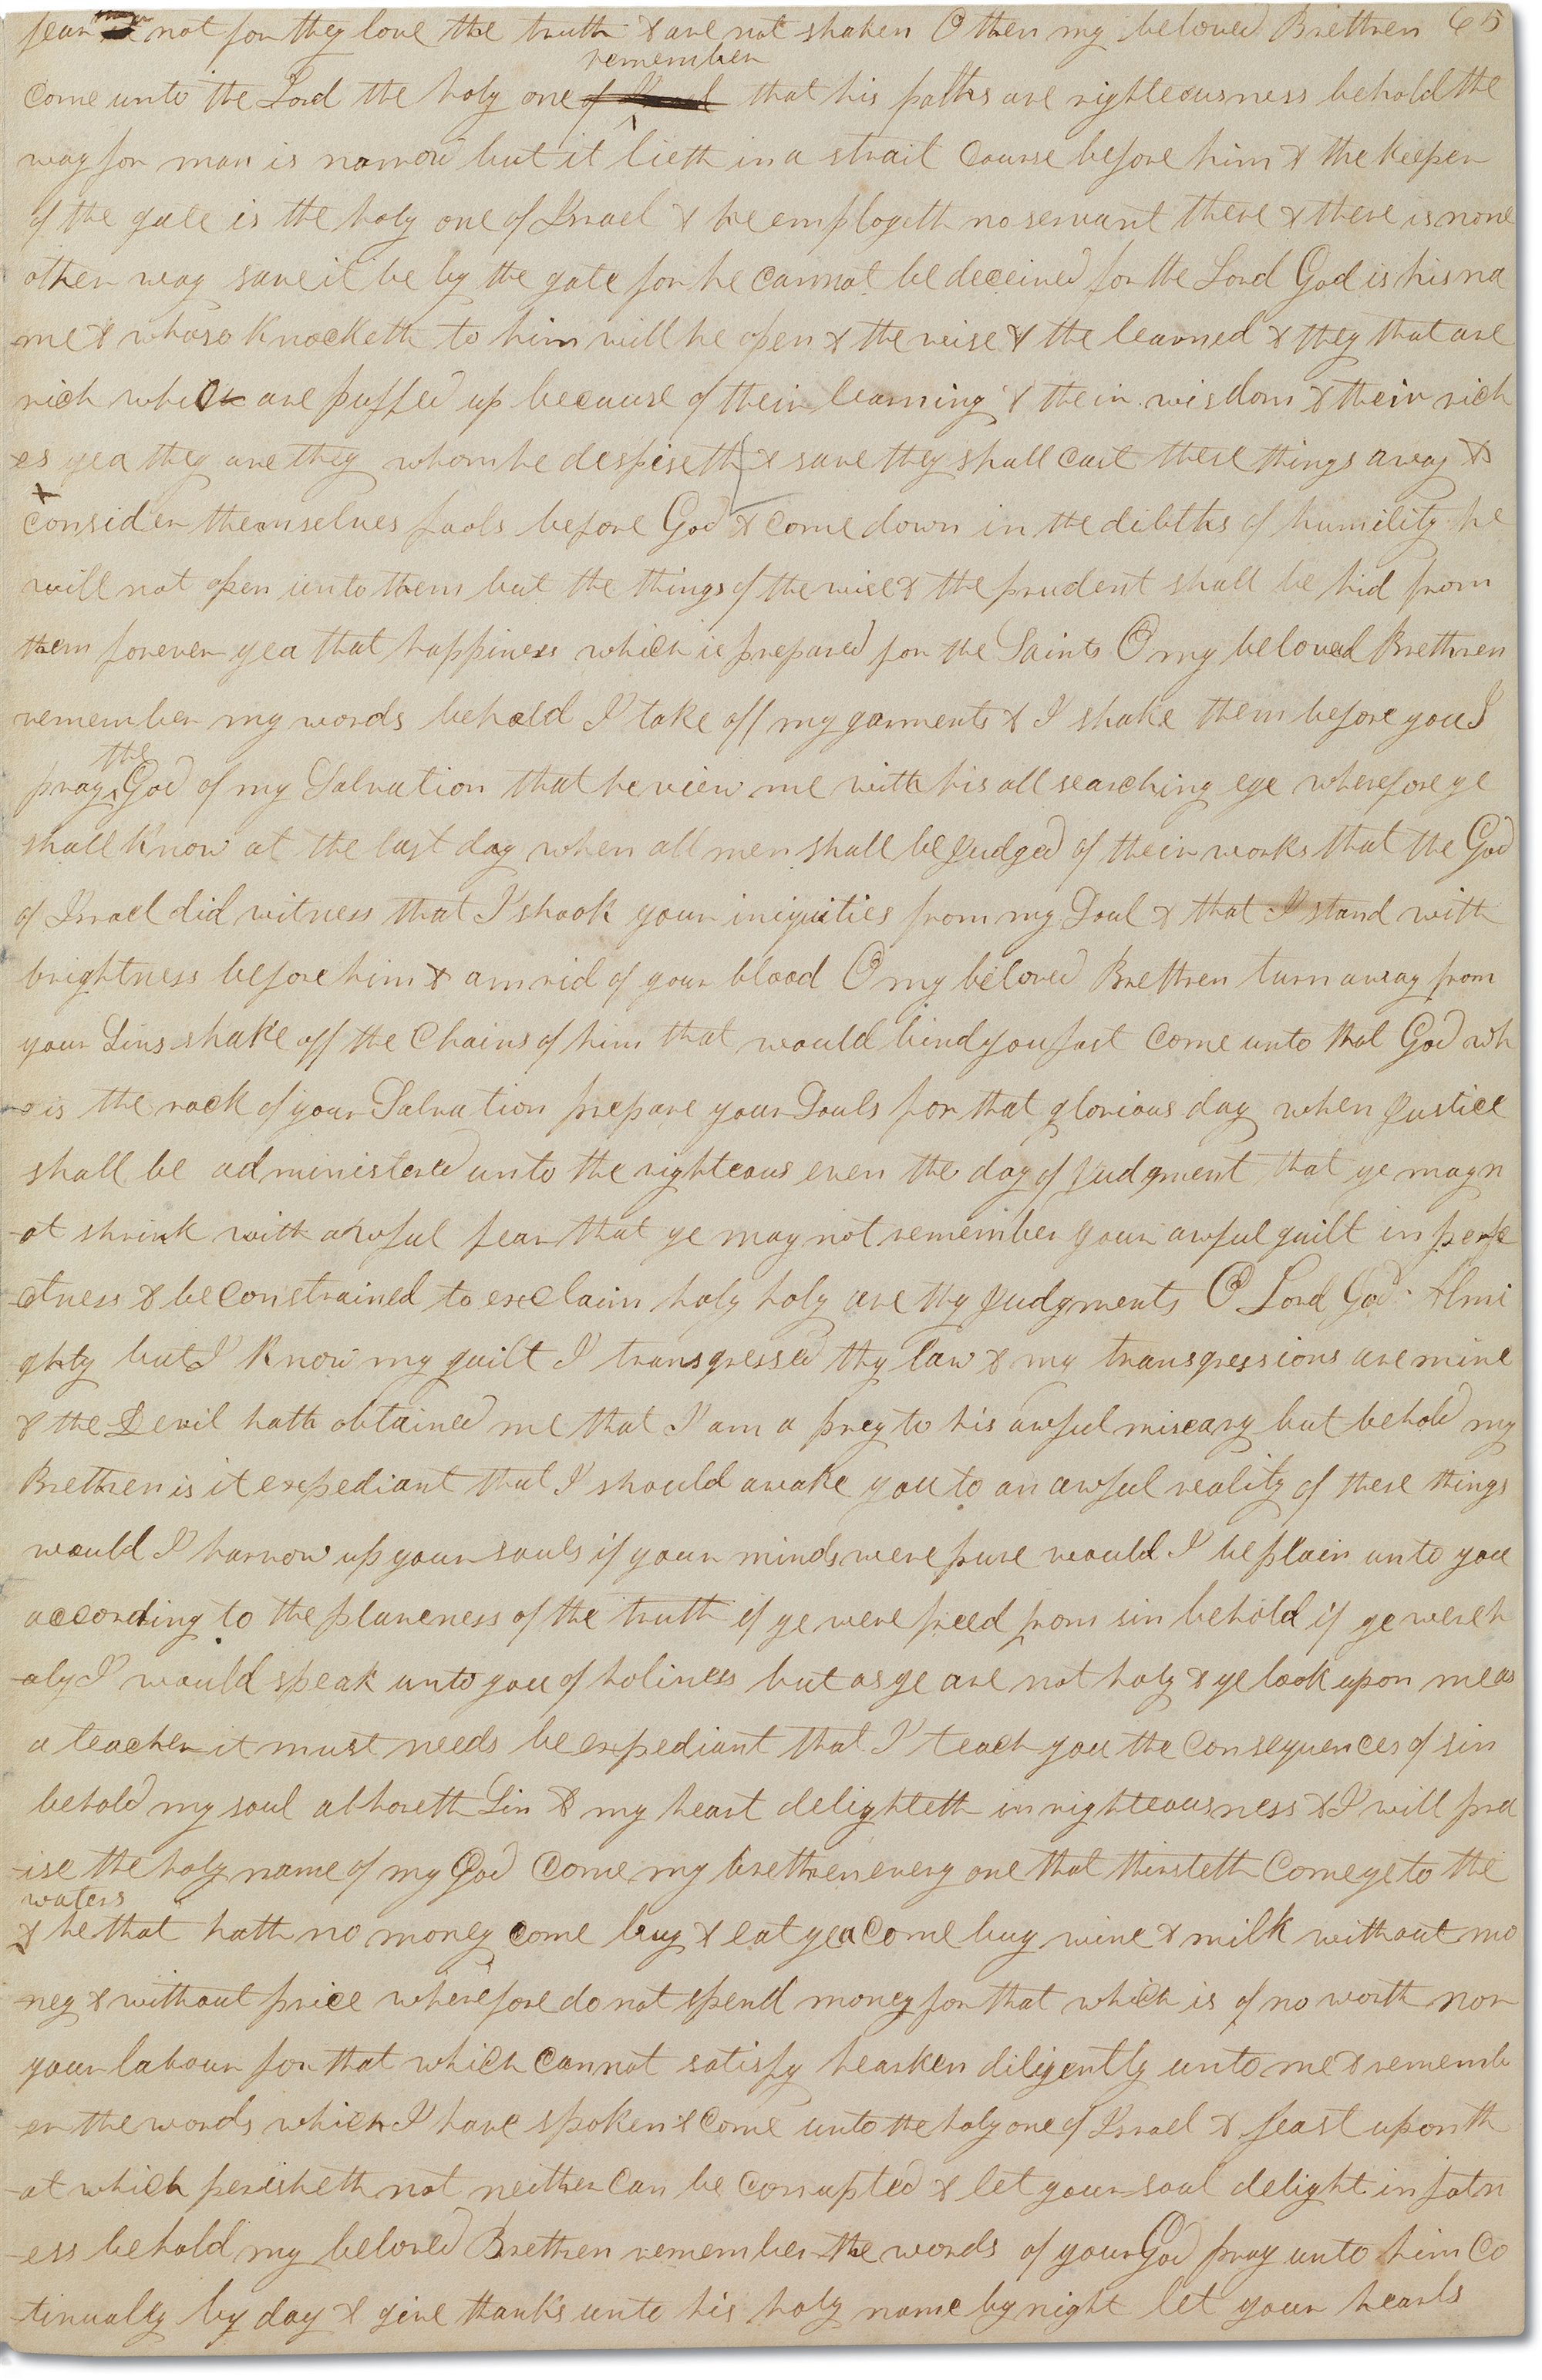 fear not for they love the truth & are not shaken O then my beloved Brethren 65
remember
come unto the Lord the holy one of Israel that his paths are righteousness behold the
way for man is narrow but it lieth in a strait course before him & the keeper
of the gate is the holy one of Israel & he employeth no servant there & there is none
other way save it be by the gate for he cannot be deceived for the Lord God is his na
-me & whoso knocketh to him will he open & the wise & the learned & they that are
rich which are puffed up because of their learning & their wisdom & their rich
-es yea they are they whom he despiseth & save they shall cast these things away &
consider themselves fools before God & come down in the debths of humility he
will not open unto them but the things of the wise & the prudent shall be hid from
them forever yea that happiness which is prepared for the Saints O my beloved Brethren
remember my words behold I take off my garments & I shake them before you I
the
pray God of my Salvation that he view me with his all searching eye wherefore ye
shall know at the last day when all men shall be Judged of their works that the God
of Israel did witness that I shook your iniquities from my Soul & that I stand with
brightness before him & am rid of your blood O my beloved Brethren turn away from
your Sins shake off the Chains of him that would bind you fast come unto that God wh
-o is the rock of your Salvation prepare your Souls for that glorious day when Justice
shall be administered unto the righteous even the day of Judgment that ye may n
-ot shrink with awful fear that ye may not remember your awful guilt in perfe
-ctness & be constrained to exclaim holy holy are thy Judgments O Lord God Almi
ghty but I know my guilt I transgressed thy law & my transgressions are mine
& the Devil hath obtained me that I am a prey to his awful miseary but behold my
Brethren is it expediant that I should awake you to an awful reality of these things
would I harrow up your souls if your minds were pure would I be plain unto you
according to the plaineness of the truth if ye were freed from sin behold if ye were h
-oly I would speak unto you of holiness but as ye are not holy & ye look upon me as
a teacher it must needs be expediant that I teach you the consequences of sin
behold my soul abhoreth Sin & my heart delighteth in righteousness & I will pra
-ise the holy name of my God Come my brethren every one that thirsteth Come ye to the
waters
& he that hath no money come buy & eat yea come buy wine & milk without mo
-ney & without price wherefore do not spend money for that which is of no worth nor
your labour for that which cannot satisfy hearken diligently unto me & rememb
-er the words which I have spoken & come unto the holy one of Israel & feast upon th
-at which perisheth not neither can be corrupted & let your soul delight in fatn
-ess behold my beloved Brethren remember the words of your God pray unto him co
-tinually by day & give thanks unto his holy name by night let your hearts